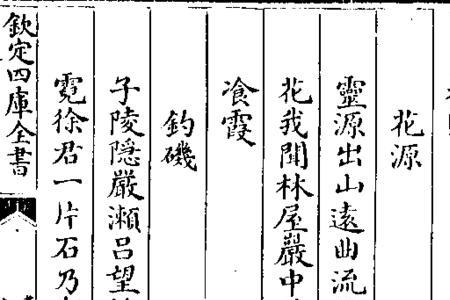 花源
靈源出山遠曲流
花我聞林屋巖中
飡霞
釣磯
子陵隱嚴瀬吕望
霓徐君一片石乃
欽定四庫全書